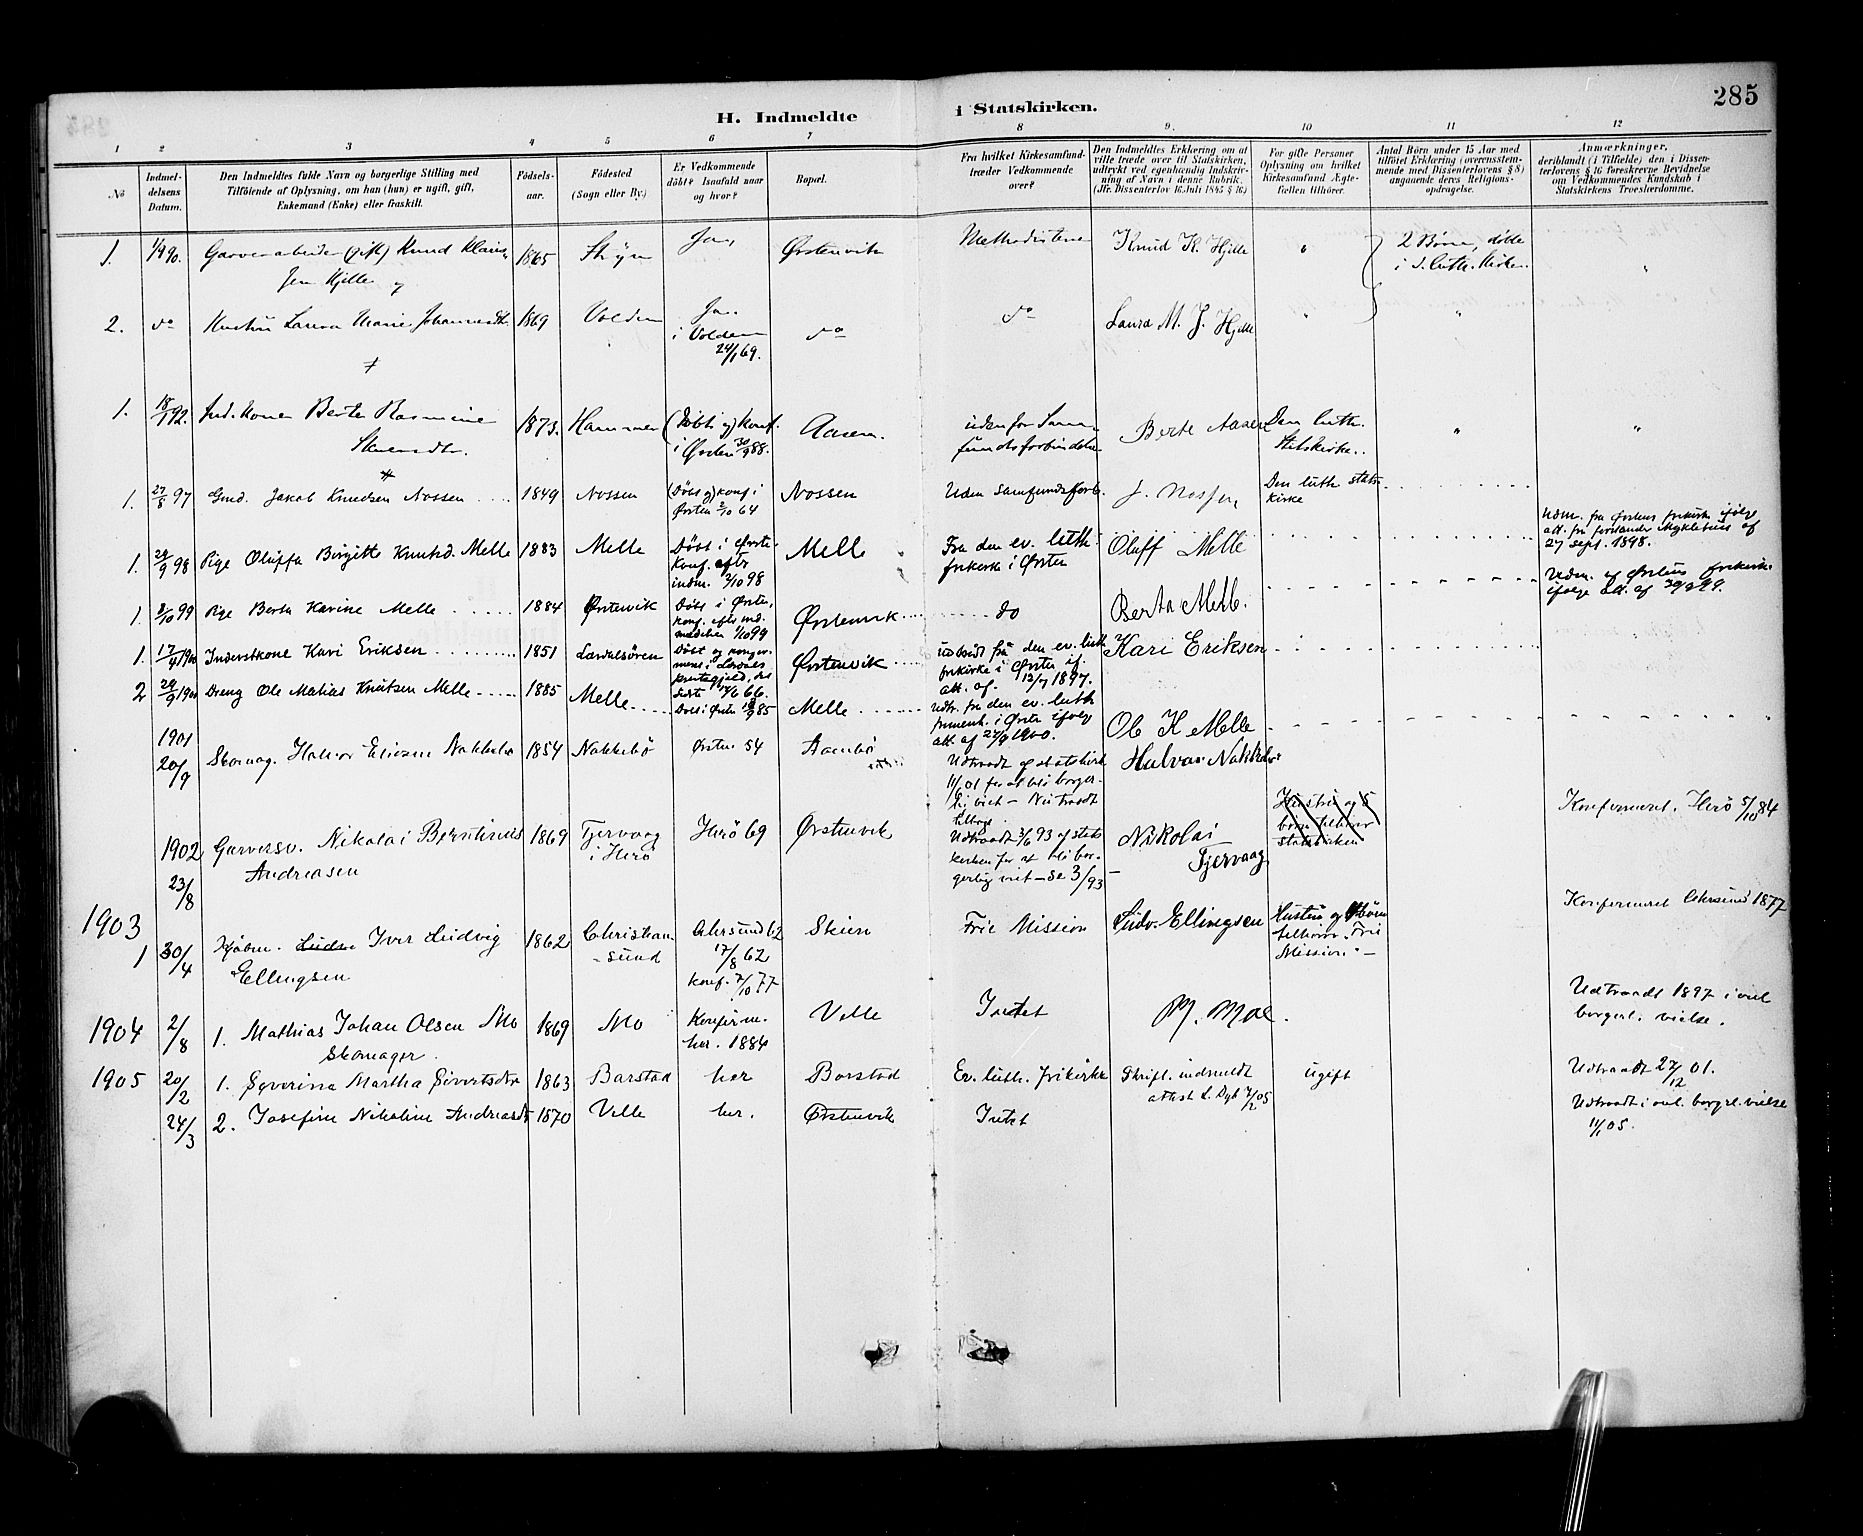 285
H. Indmeldte i Statskirken.
1 2 3 4 5 6 7 8 9. 10 11 12
No
Indmel-
delsens
Datum.
Den Indmeldtes fulde Navn og borgerlige Stilling med
Tilföiende af Oplysning, om han (hun) er ugift, gift,
Enkemand (Enke) eller fraskilt.
Födsels-
aar.
Födested
(Sogn eller By.)
Er Vedkommende
döbt? Isaafald naar
og hvor?
Bopæl.
Fra hvilket Kirkesamfund
træder Vedkommende
over?
Den Indmeldtes Erklæring om at
ville træde over til Statskirken,
udtrykt ved egenhændig Indskriv-
ning af Navn i denne Rubrik.
(Jfr. Dissenterlov 16. Juli 1845 § 16.)
For gifte Personer
Oplysning om hvilket
Kirkesamfund Ægte-
fællen tilhörer.
Antal Börn under 15 Aar med
tilföiet Erklæring (overensstem-
mende med Dissenterlovens § 8)
angaaende deres Religions-
opdragelse.
Anmærkninger,
deriblandt (i Tilfælde) den i Dissen-
terlovens § 16 foreskrevne Bevidnelse
om Vedkommendes Kundskab i
Statskirkens Troeslærdomme.
1. 1/9 90. Garverarbeider (gift) Knud Klaus-
sen Hjelle og
1865 Stryn Ja, Ørstenvik Methodisterne Knud K. Hjelle " 2 Børn, døbte
i d. luth. Kirke. "
2. do Hustru Laura Marie Johannesdtr. 1869 Volden Ja.
i Volden
24/1 69.
do do Laura M. J. Hjelle " "
1. 18/1 92. Ind. kone Berte Rasmine
1873. Hammer (Døbt og) konf.
i Ørsten 30/9 88.
Aasen. udenfor Sam-
fundsforbindelse Berte Aasen Den luth.
Statskirke. " "
1. 27/8 97 Gmd. Jakob Knudsen Nossen 1849 Nossen (Døbt og) konf i
Ørsten 2/10 64
Nossen Uden Samfundsforb. J. Nossen Den luth stats
kirke
1. 29/9 98 Pige Oluffa Birgitte Knutsd. Melle 1883 Melle Døbt i Ørste.
Konf. efter
indm. 2/10 98
Melle Fra den ev. luth.
frikirke i Ørsten Oluff Melle Udm. fra Ørstens frikirke ifølge
att. fra forstander Myklebust af
27 sept. 1898.
1. 2/10 99 Pige Berta Karine Melle 1884 Ørstenvik Døbt i Ørsten,
konf. efter ind.
meldelsen 1/10 99
Ørstenvik do Berta Melle. Udm. af Ørstens frikirke
ifølge att. af 30/9 99.
1. 17/4 1900 Inderstkone Kari Eriksen 1851 Lærdalsøren Døbt og konfir
meret i Lærdals
prestegjeld, det
sidste 66.
Ørstenvik udtraadt fra den ev. luth
frikirke i Ørsten if.
att. af. 12/7 1897.
Kari Eriksen
2 29/9 1900 Dreng Ole Matias Knutsen Melle 1885 Melle Døbt i Ørsten 85 Melle Udtr. fra den ev. luth
frimenh. i Ørsten ifølg
att. af 27/9 1900.
Ol K Melle
1901
20/9
Skomag. Halvor Eliesen Nakkebø 1854 Nakkebø Ørsten 54 Aambø Udtraadt af statskirk
11/6 01 for at bli borger-
lig viet – Nu traadt
tilbage. Halvor Nakkebø
1902
23/8
Garversv. Nikolai Berntinus
Andreasen
1869 Tjervaag
i Herø Herø 69 Ørstenvik Udtraadt 3/6 93 af stats
kirken for at bli bor-
gerlig viet – se 3/93 –
Nikolai
Tjervaag Hustru og 5
børn tilhører
statskirken Konfirmeret. Herø 5/10 84
1903
1 30/4 Kjøbm. Iver Ludvig
Ellingsen
1862 Christian-
sund Chrsund 62
17/8 62
konf. 7/10 77
Skien Frie Mission Ludv. Ellingsen Hustru og børn
tilhører Frie
Mission. – Konfirmeret Chrsund 1877
1904 2/8 1. Mathias Johan Olsen Mo
Skomager.
1869 Mo Konfirm.
her. 1884 Velle Intet M. Moe. Udtraadt 1897 i anl
borgerl. vielse.
1905 20/2 1. Syverina Martha Sivertsdtr 1863 Barstad her Barstad Ev. luth. frikirke Skriftl. indmeldt
attest L. Dyb 7/2 05 ugift Udtraadt 27/12 01.
24/3 2. Josefine Nikoline Andreasdtr 1870 Velle her. Ørstenvik Intet Udtraadt i anl. borgerl. vielse
11/1 05.